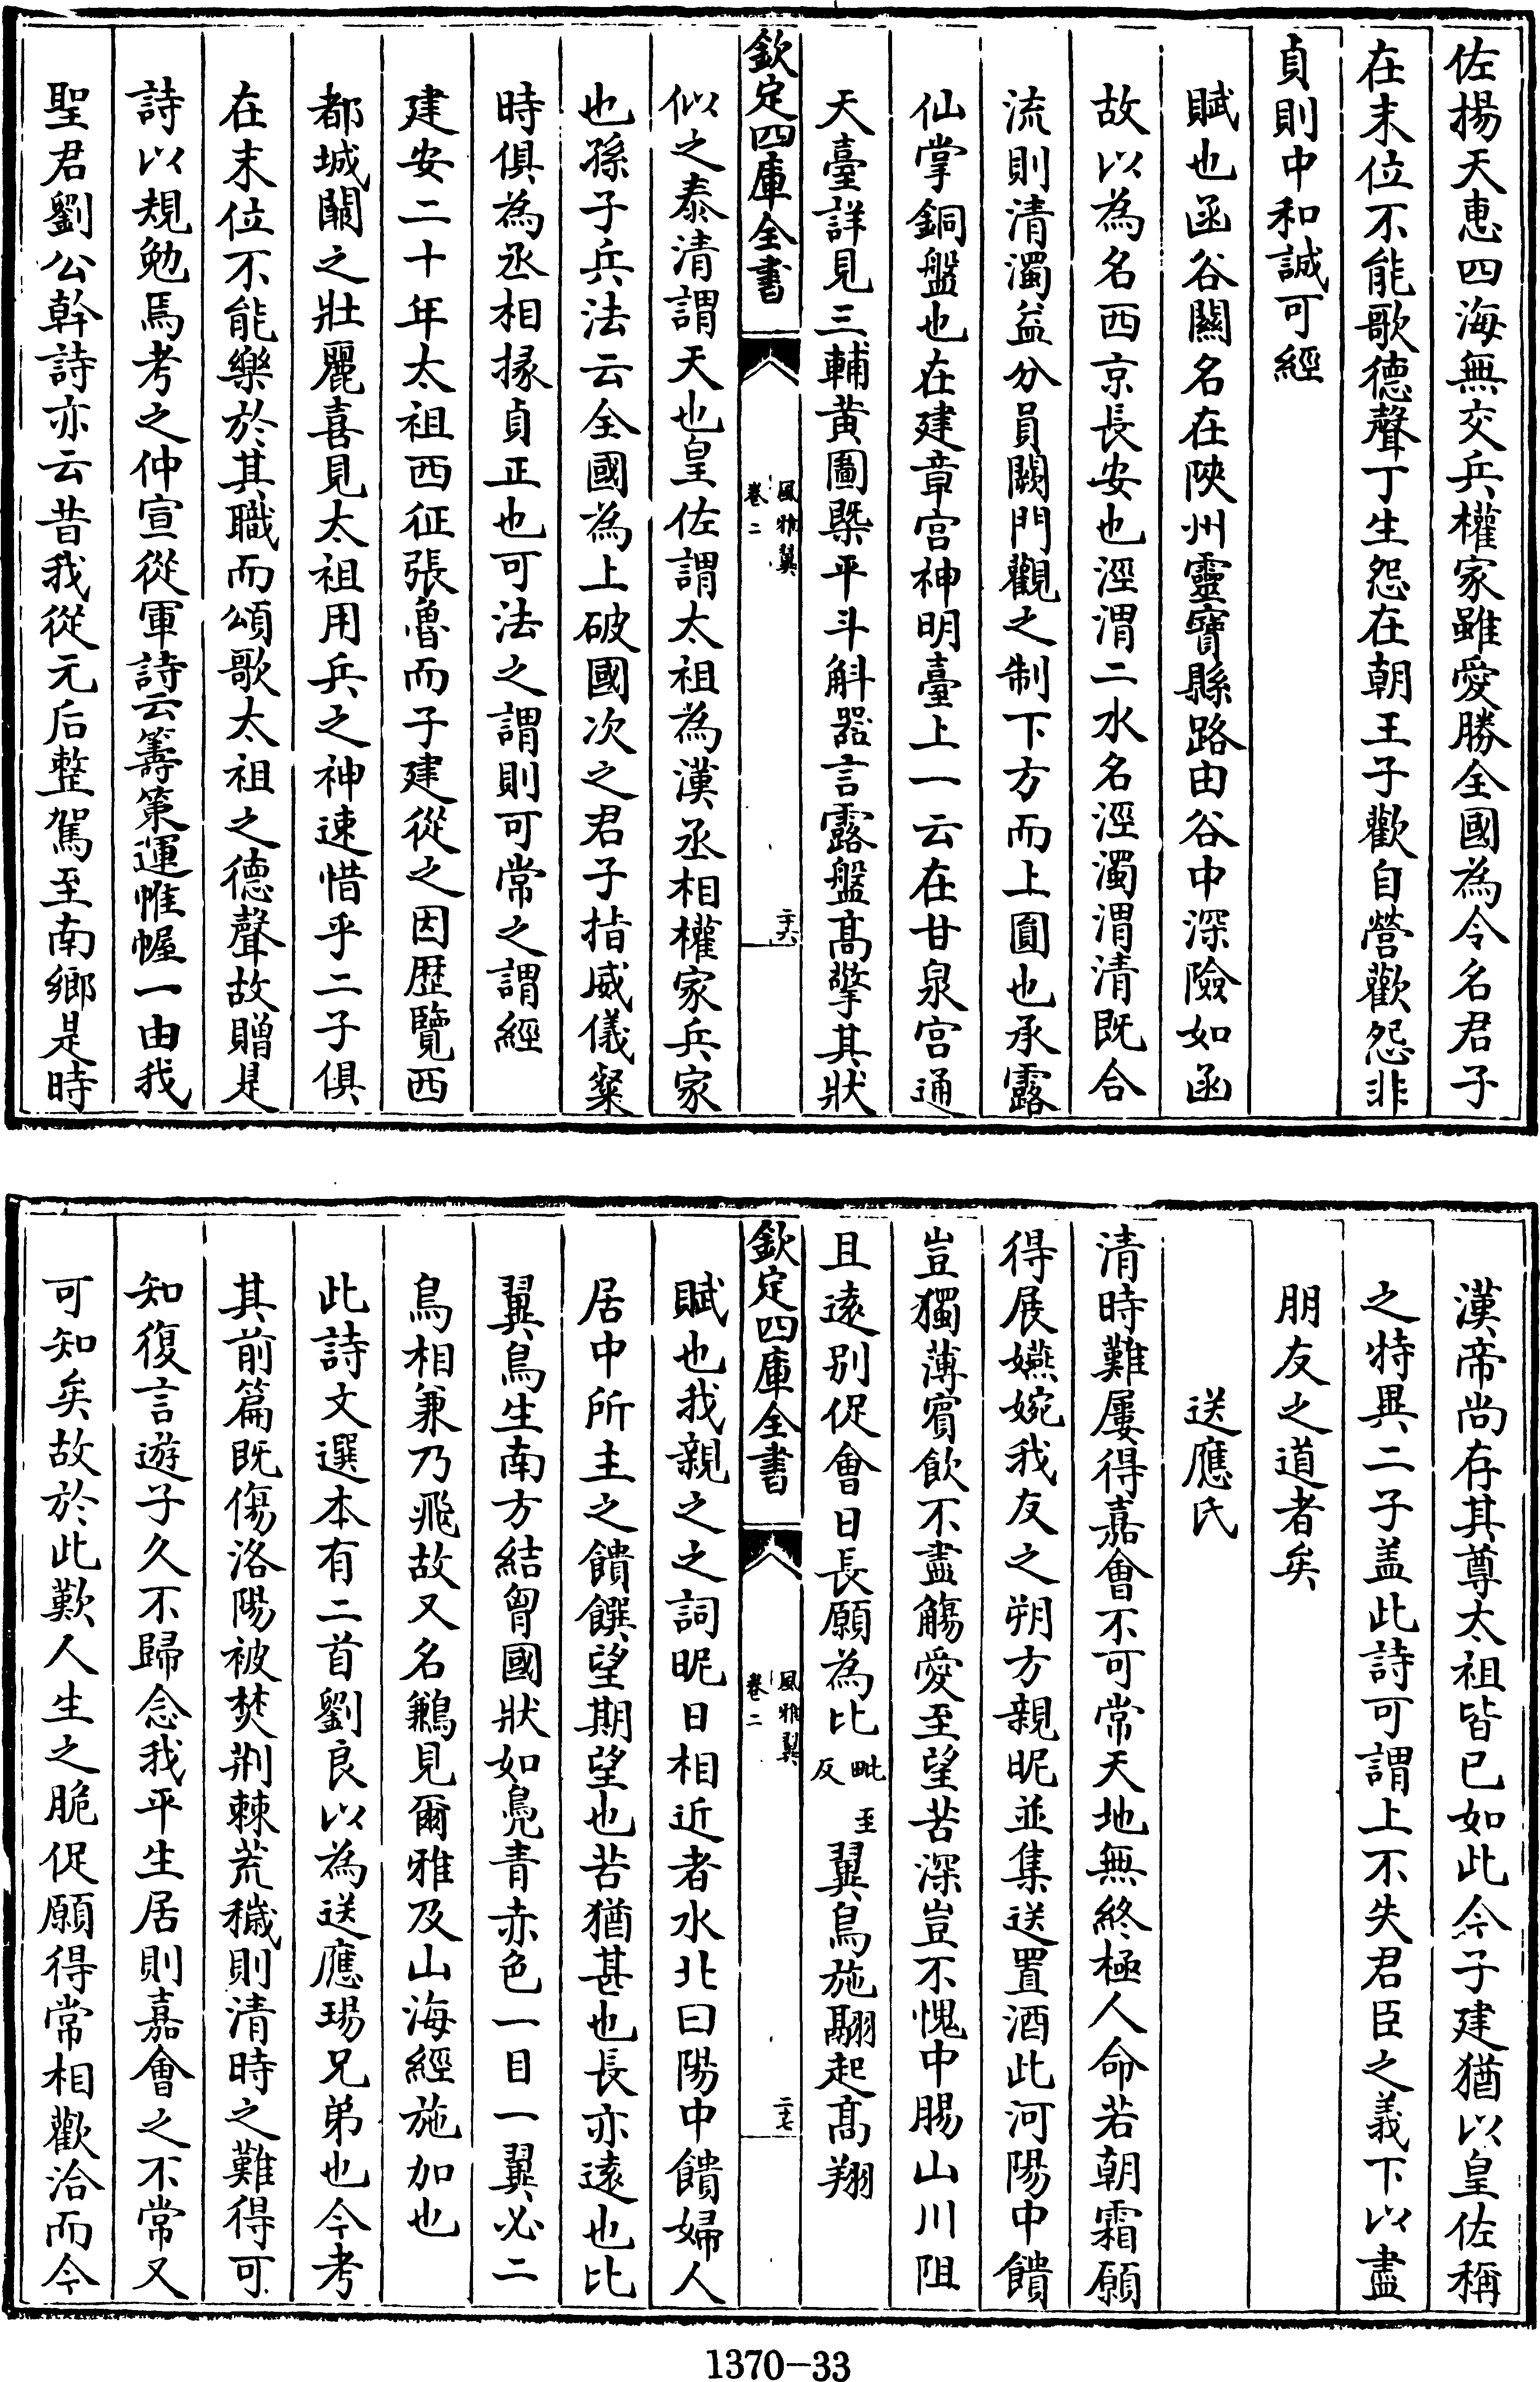 佐揚天惠四海無交兵權家雖愛勝全國為令名君子
在末位不能歌德聲丁生怨在朝王子歡自營歡怨非
貞則中和誠可經
賦也函谷關名在陜州靈寶縣路由谷中深險如函
故以為名西京長安也涇渭二水名涇濁渭清既合
流則清濁益分員闕門觀之制下方而上圓也承露
仙掌銅盤也在建章宫神明臺上一云在甘泉宫通
天臺詳見三輔黄圖槩平斗斛器言露盤髙擎其狀
欽定四庫全書
風雅翼
卷二
二十六
似之泰清謂天也皇佐謂太祖為漢丞相權家兵家
也孫子兵法云全國為上破國次之君子指威儀粲
時俱為丞相掾貞正也可法之謂則可常之謂經
建安二十年太祖西征張魯而子建從之因歴覽西
都城闕之壯麗喜見太祖用兵之神速惜乎二子俱
在末位不能樂於其職而頌歌太祖之德聲故贈是
詩以規勉焉考之仲宣從軍詩云籌策運帷幄一由我
聖君劉公幹詩亦云昔我從元后整駕至南鄉是時
漢帝尚存其尊太祖皆已如此今子建猶以皇佐稱
之特異二子盖此詩可謂上不失君臣之義下以盡
朋友之道者矣
送應氏
清時難屢得嘉會不可常天地無終極人命若朝霜願
得展嬿婉我友之朔方親昵並集送置酒此河陽中饋
豈獨薄賓飲不盡觴愛至望苦深豈不愧中腸山川阻
且遠别促會日長願為比毗至反翼鳥施翮起髙翔
欽定四庫全書
風雅翼
卷二
二十七
賦也我親之之詞昵日相近者水北曰陽中饋婦人
居中所主之饋饌望期望也苦猶甚也長亦遠也比
翼鳥生南方結胷國狀如鳧青赤色一目一翼必二
鳥相兼乃飛故又名鶼見爾雅及山海經施加也
此詩文選本有二首劉良以為送應瑒兄弟也今考
其前篇既傷洛陽被焚荆棘荒穢則清時之難得可
知復言遊子久不歸念我平生居則嘉會之不常又
可知矣故於此歎人生之脆促願得常相歡洽而今
1370-33